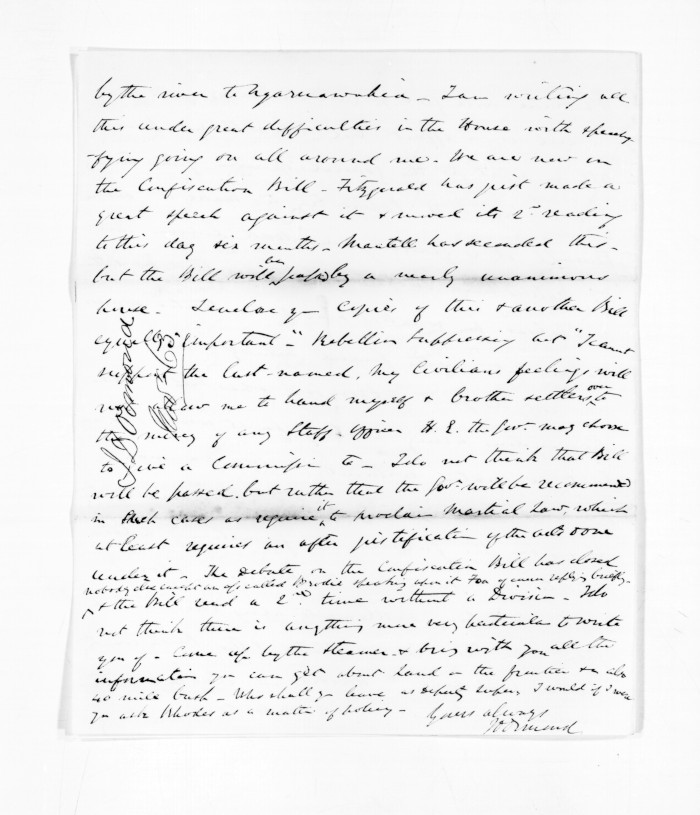 by the river to Ngaruawahia - I am writing all
this under great difficulties in the House with speechi-
fying going on all around me. We are now on
the Confiscation Bill - Fitzgerald has just made a
great speech against it & moved its 2d reading
to this day six months - Mantell has seconded this -
but the Bill will be passed by a nearly unanimous
house - I enclose you copies of this & another Bill
equally important - "Rebellion Suppressing Act" I cannot
support the last named, my Civilians feelings will
not allow me to hand myself & brother settlers over to
the mercy of any Staff Officer H. E. the Govr may choose
to give a Commission to - I do not think that Bill
will be passed, but rather that the Govr will be recommend
in such cases as require it, to proclaim Martial Law, which
at least requires an after justification of the acts done
under it - The Debate on the Confiscation Bill has closed
nobody except an ass called Brodie speaking upon it Fox of course replying briefly -
& the Bill read a 2nd time without a Division - I do
not think there is anything more very particular to write
you of - Come up by the Steamer & bring with you all the
information you can get about land on the frontier & in also
40 mile bush - Who shall you leave as deputy Super, I would if I were
you ask Rhodes as a matter of policy -
Yours always
J D Ormond
J D Ormond
Nov 5 /63